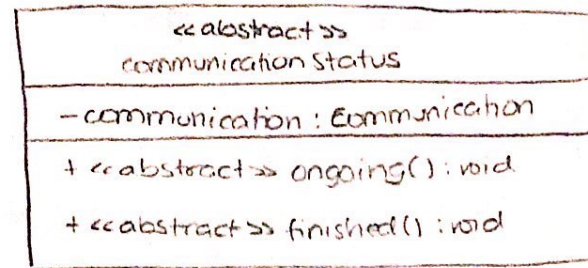 <<abstract>>
communication Status
- communication : Communication
+ <<abstract>> ongoing() : void
+ <<abstract>> finished() : void